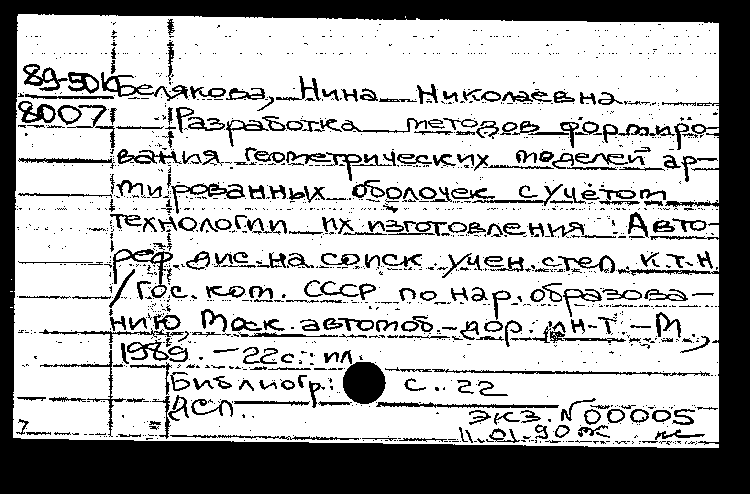 89-50к Белякова, Нина Николаевна
8007 Разработка методов формиро-
вания геометрических моделей ар-
мированных оболочек с учётом
технологии их изготовления : Авто-
реф. дис. на соиск. учен. степ. к.т.н.
/ Гос. ком. СССР по нар. образова-
нию, Моск. автомоб.-дор. ин-т. - М.,
1989. - 22 с. : ил.
Библиогр.: с. 22
ДСП.
экз. № 00005
7 11.01.90